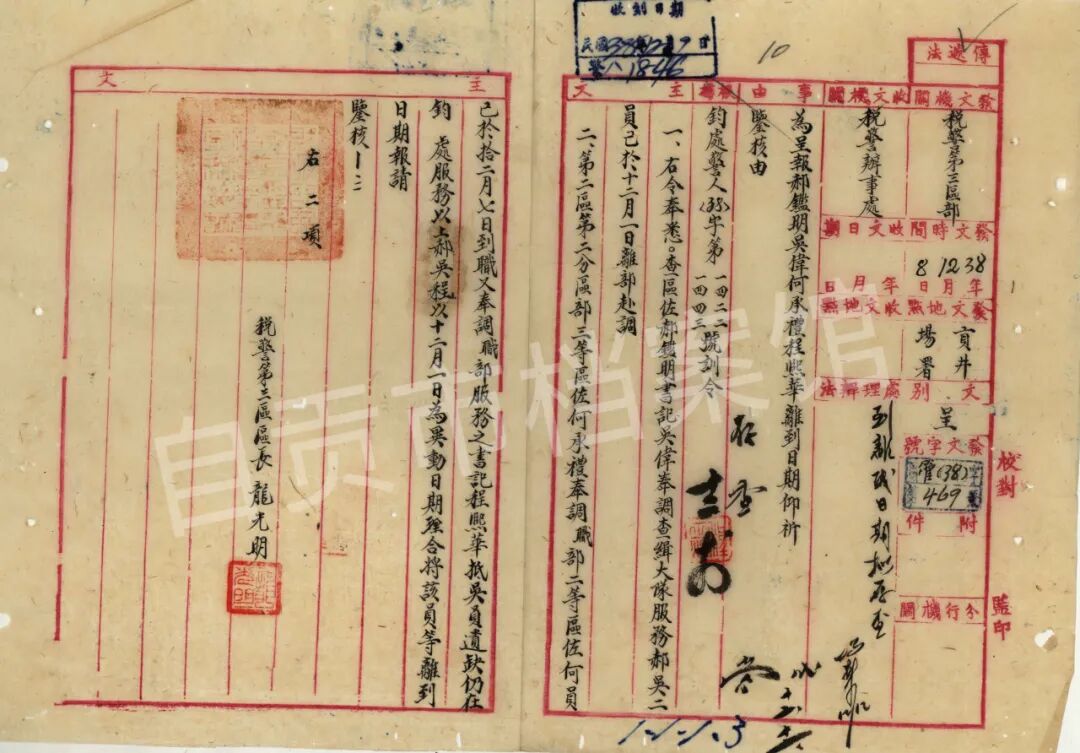 傳遞法
收到日期
民國38年12月9日
警八1846
10
發文機關
稅警第三區部
收文機關
稅警辦事處
發文時間
38年12月8日
收文日期
年月日
發文地點
貢井場署
收文地點
文別
呈
處理辦法
到離職日期擬存查
發文字號
(38)
469
附件
分行機關
校對
監印
事由
為呈報郝鑑明吳偉何承禮程熙華離到日期仰祈
鑒核由
主文
鈞處警人(38)字第一四二二
一四四三號訓令
一、右令奉悉。查區佐郝鑑明書記吳偉奉調查緝大隊服務郝吳二
員已於十二月一日離部赴調
二、第二區第二分區部三等區佐何承禮奉調職部二等區佐何員
主文
已於拾二月七日到職又奉調職部服務之書記程熙華抵吳員遺缺仍在
鈞處服務以上郝吳程以十二月一日為異動日期理合將該員等離到
日期報請
鑒核
右二項
稅警第三區區長 龍光明
1-1-1.3
自贡市档案馆